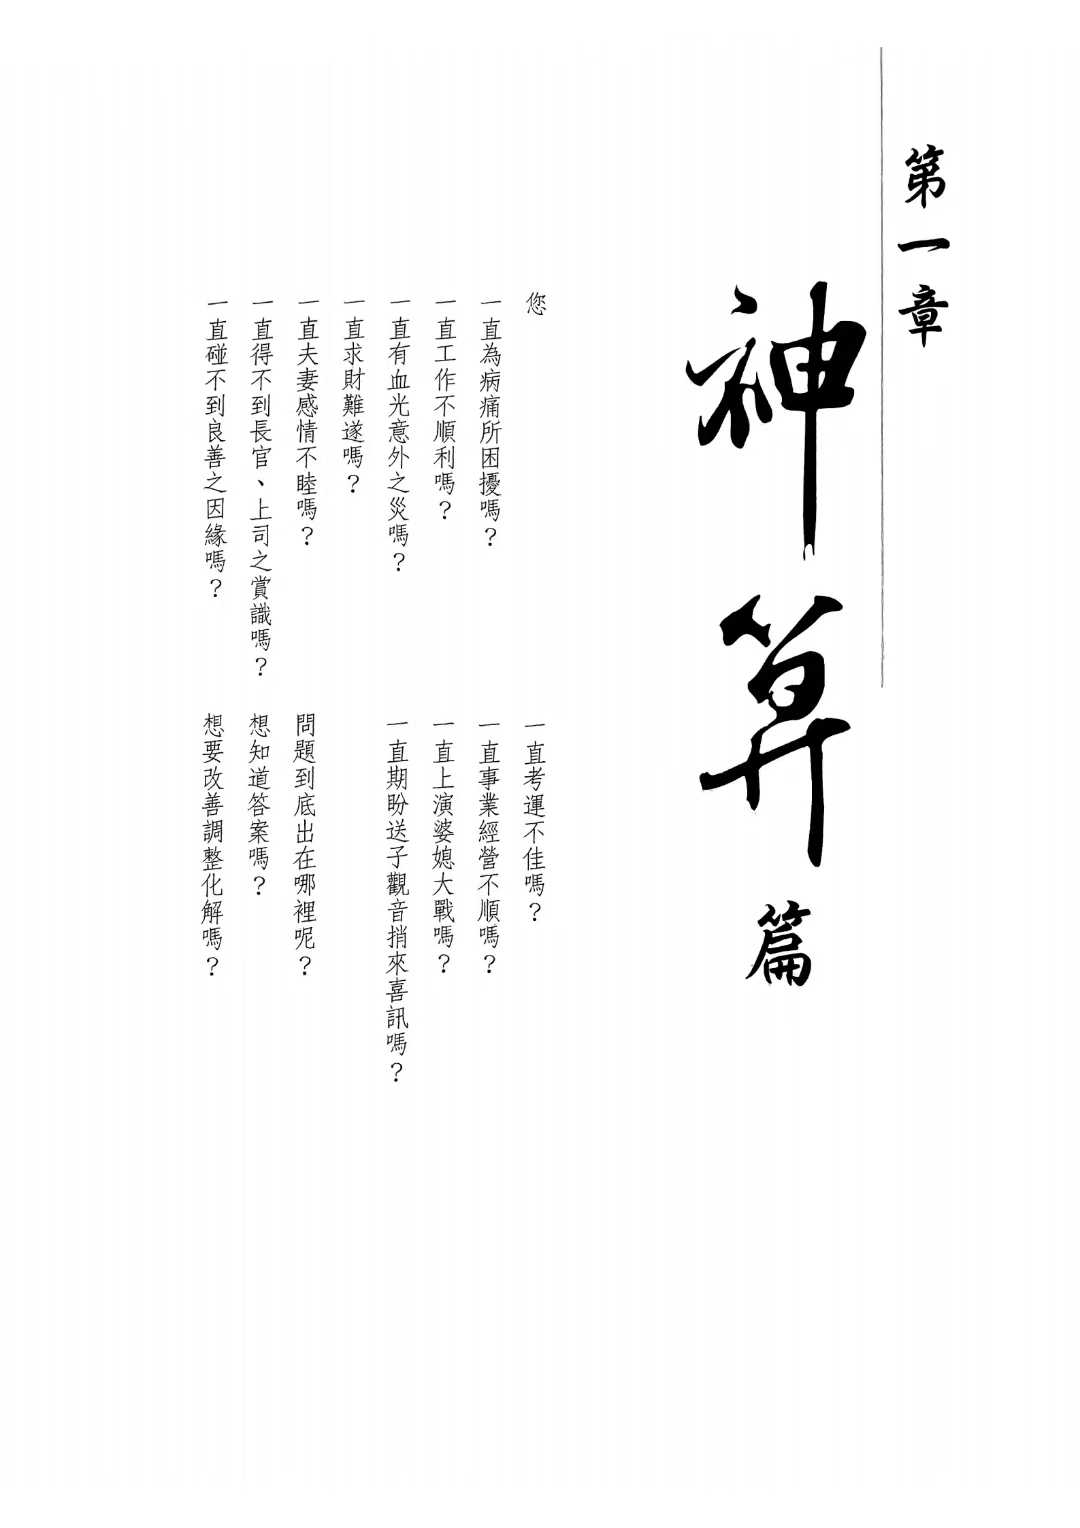 第一章
神算篇
您
一直為病痛所困擾嗎？
一直工作不順利嗎？
一直有血光意外之災嗎？
一直求財難遂嗎？
一直夫妻感情不睦嗎？
一直得不到長官、上司之賞識嗎？
一直碰不到良善之因緣嗎？
一直考運不佳嗎？
一直事業經營不順嗎？
一直上演婆媳大戰嗎？
一直期盼送子觀音捎來喜訊嗎？
問題到底出在哪裡呢？
想知道答案嗎？
想要改善調整化解嗎？